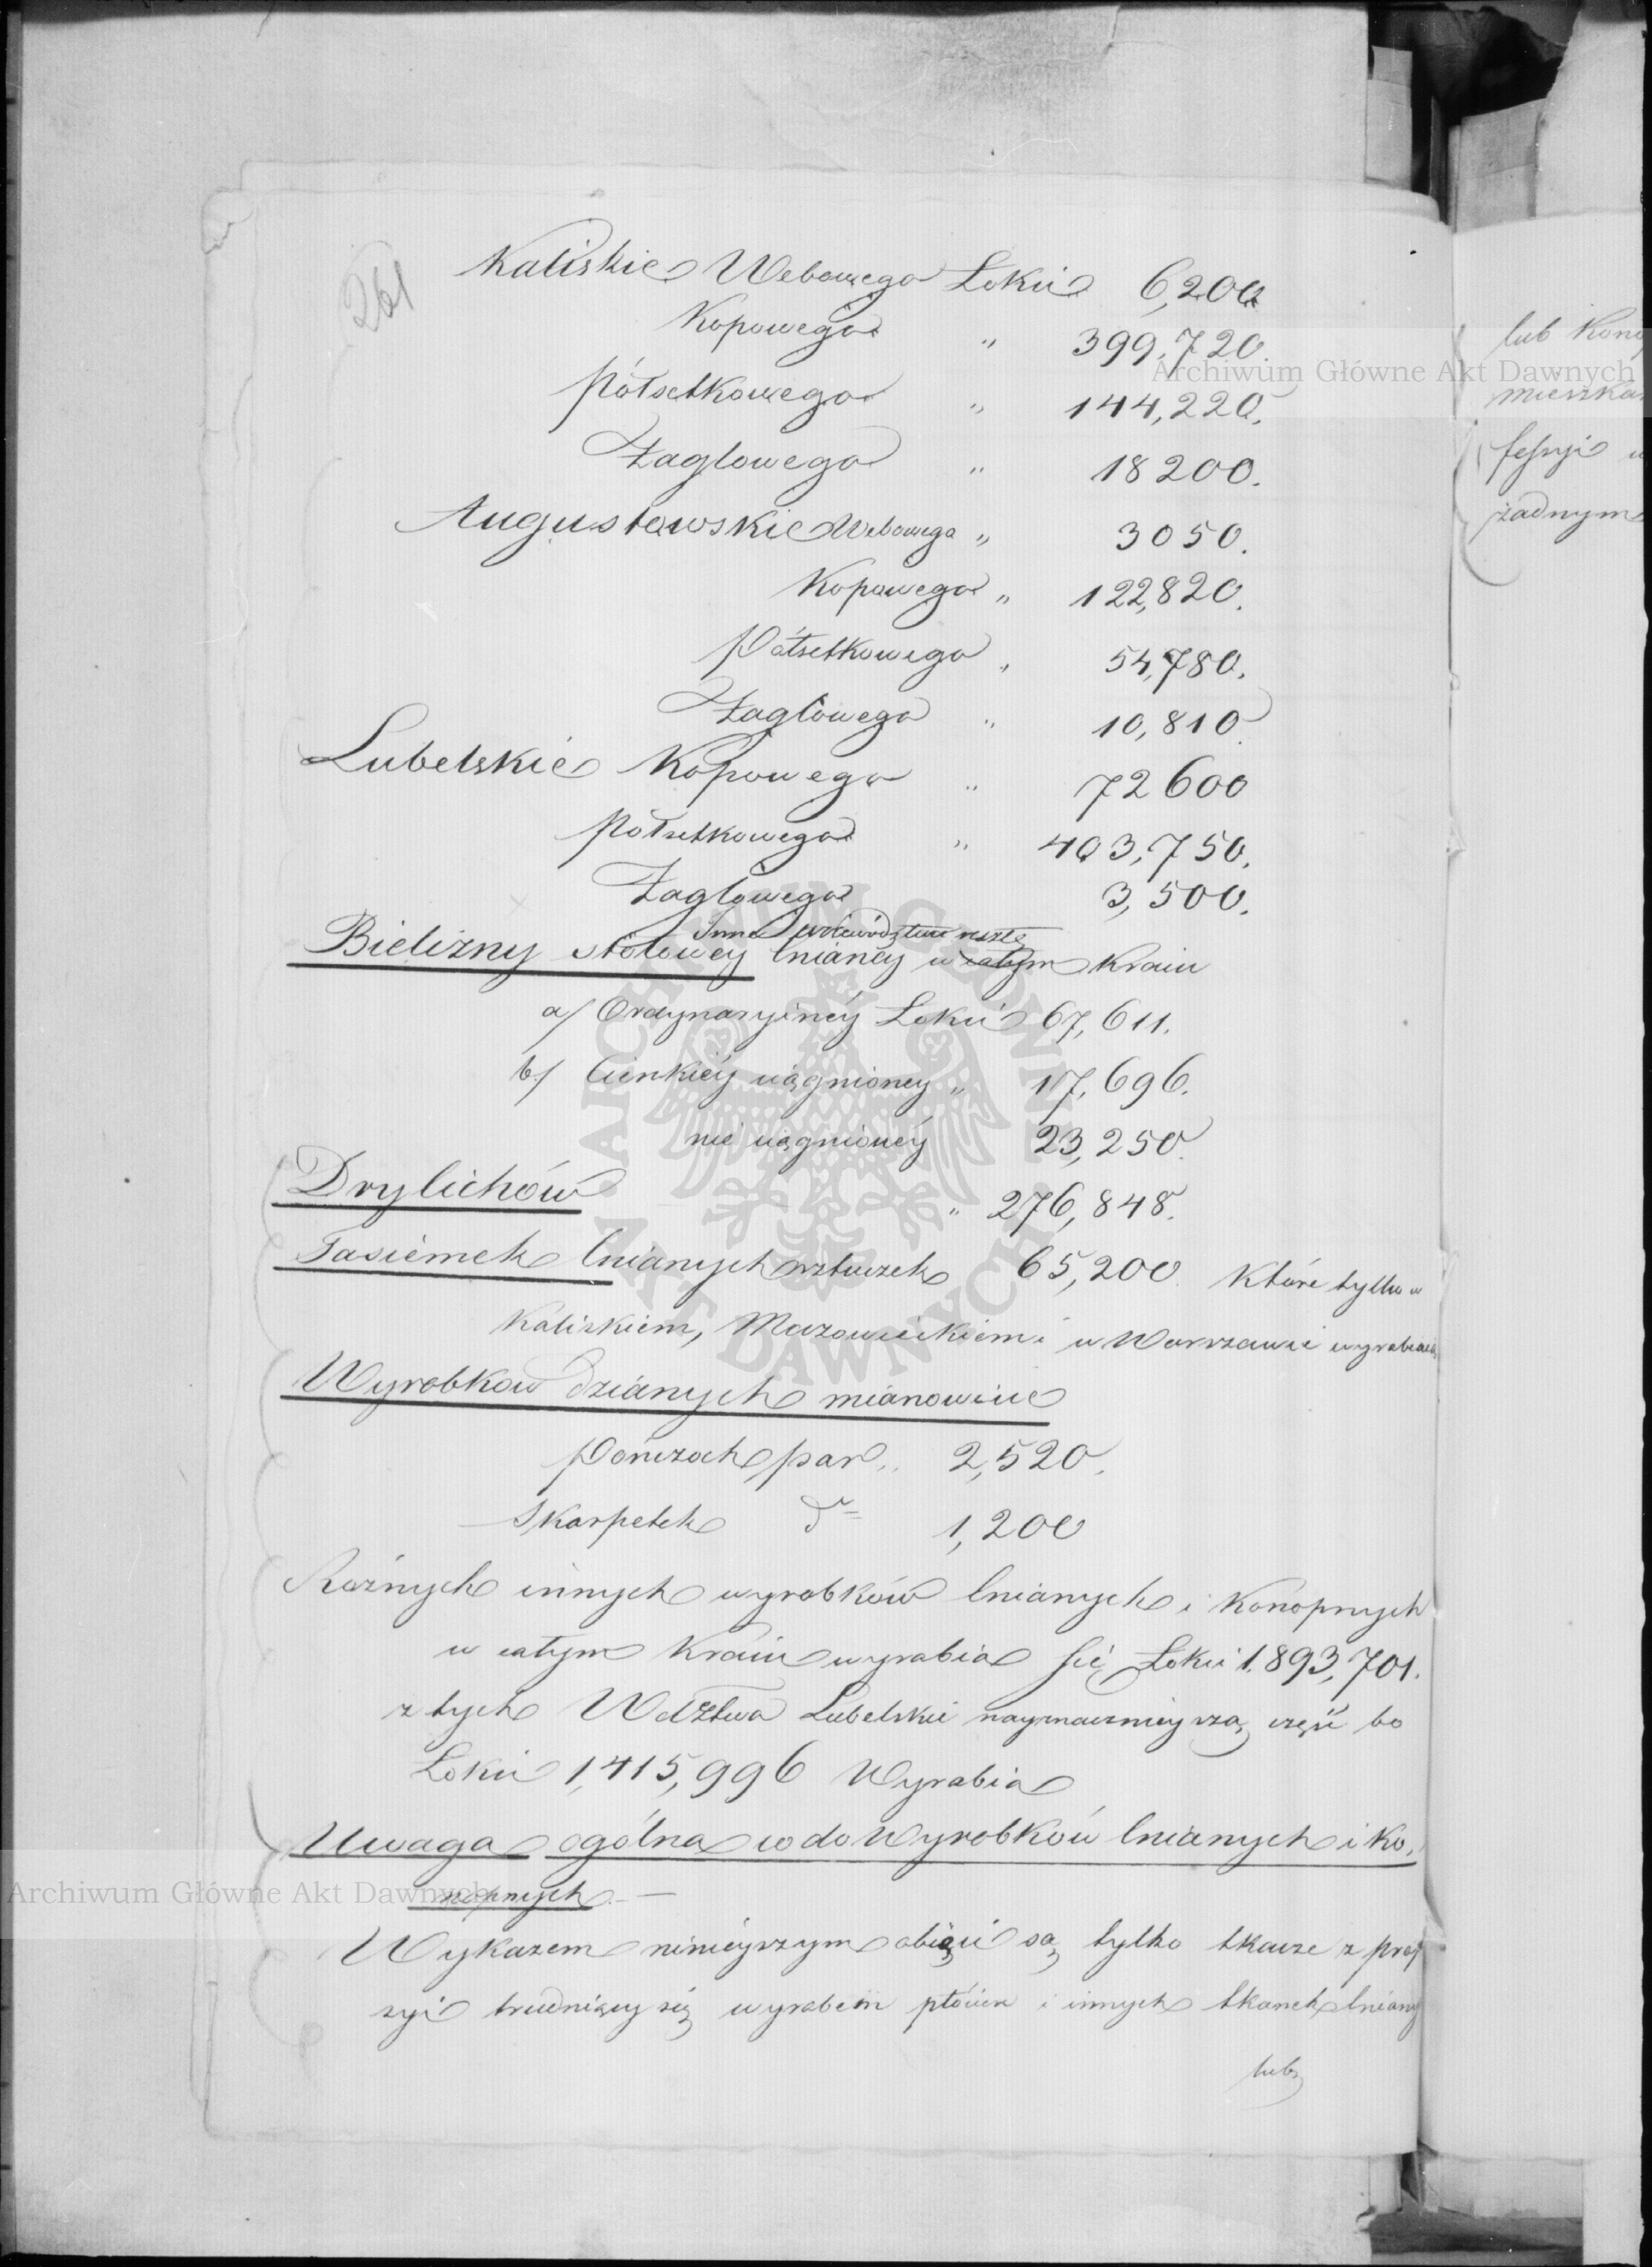 261
Kaliskie Webowego Łokci 6,200
Kopowego „ 399,720.
Półsetkowego „ 144,220.
Żaglowego „ 18200.
Augustowskie Webowego „ 3050.
Kopowego „ 122,820.
Półsetkowego „ 54,780.
Żaglowego „ 10,810.
Lubelskie Kopowego „ 72600
Półsetkowego „ 403,750.
Żaglowego 3,500.
Inne Województwa resztę
Bielizny stołowey lnianey w całym Kraiu
a/ Ordynaryinéy Łokci 67,611.
b/ Cienkiéy ciągnioney „ 17,696.
nie ciągnionéy 23,250.
Drylichów „ 276,848.
Tasiemek lnianych sztuczek 65,200. Które tylko w
Kaliskiem, Mazowieckiem i w Warszawie wyrabiaią
Wyrobków dzianych mianowicie
Pończoch par „ 2,520.
Skarpetek do 1,200
Różnych innych wyrobków lnianych i Konopnych
w całym Kraiu wyrabia się Łokci 1,893,701.
z tych Wdztwa Lubelskie nayznacznieyszą część bo
Łokci 1,415,996 Wyrabia
Uwaga ogólna co do Wyrobków lnianych i Ko-
nopnych. —
Wykazem ninieyszym obięci są tylko tkacze z prof
syi trudniący się wyrobem płócien i innych tkanek lniany
lub
lub Kono
mieszka
fessyi w
żadnym
Archiwum Główne Akt Dawnych
Archiwum Główne Akt Dawnych
ARCHIWUM GŁÓWNE AKT DAWNYCH